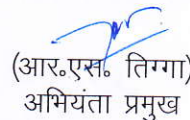 (आर॰एस॰ तिग्गा)
अभियंता प्रमुख